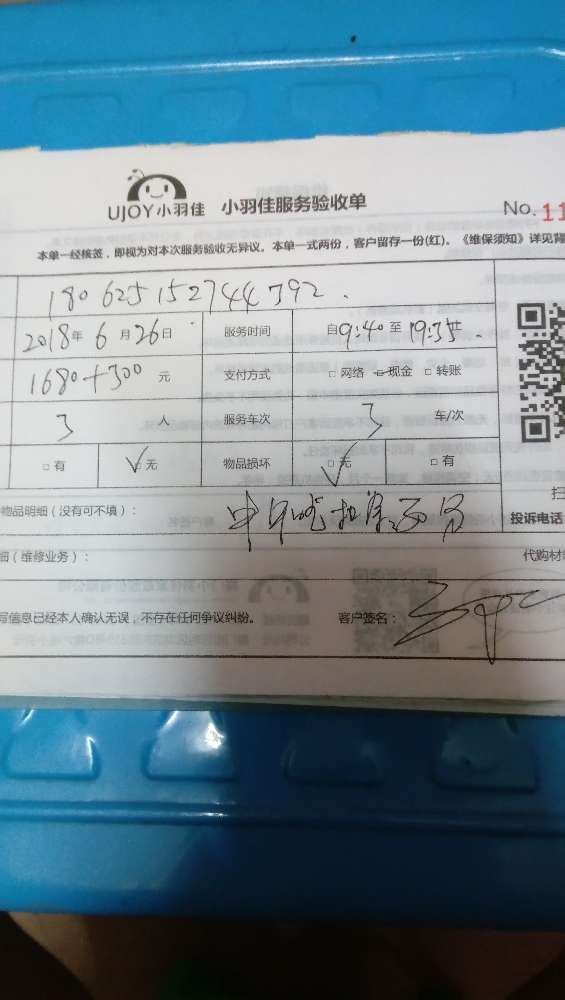 UJOY小羽佳 小羽佳服务验收单 No. 11
本单一经核签，即视为对本次服务验收无异议。本单一式两份，客户留存一份(红)。《维保须知》详见背
180625152744392.
2018年6月26日 服务时间 自9:40至19:35.
1680+300元 支付方式 □网络 □现金 □转账
3人 服务车次 3车/次
□有 □无 物品损坏 □无 □有
扫
物品明细（没有可不填）： 投诉电话
细（维修业务）： 代购材
写信息已经本人确认无误，不存在任何争议纠纷。 客户签名：